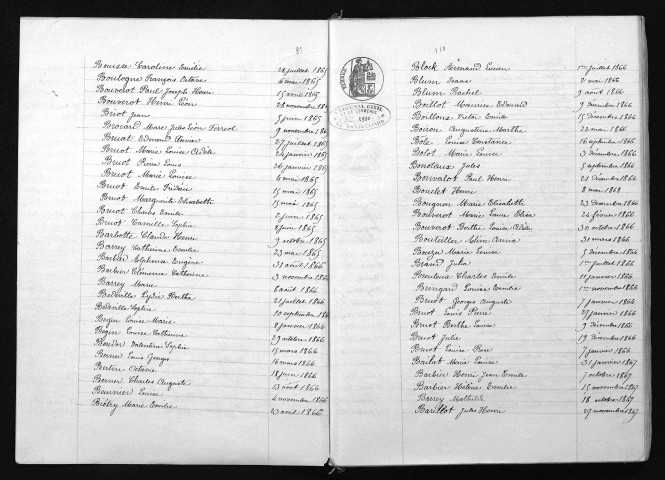 Caroline Emilie 28 juillet 1865
Boulogne François Octave 6 mai 1865
Bouverot Paul Joseph Henri 15 avril 1865
Bouverot Henri Léon 28 novembre
Briot Jean 5 juin 1865
Marc Jules Léon 9 novembre
Bruat Edmond 27 juillet 1865
Bruot Marie Louise Adèle 24 janvier 1865
Bruot Pierre Louis 26 janvier 1865
Bruot Marie Louise 4 mai 1865
Bruot Emile Frédéric 15 mai 1865
Bruot Marguerite Elisabeth 15 mai 1865
Bruot Charles Emile 2 juin 1865
Bruot Camille Sophie 8 juin 1865
Barbotte Claude Henri 9 octobre 1865
Barrey Catherine Emilie 23 mai 1865
Alphonse Eugène 31 août 1866
Barbier Clémence Catherine 3 novembre 1866
Barrey Marie 8 août 1866
Bédeville Lydie Bertha 21 juillet 1866
Bédeville Sophie 10 septembre 1866
Bégin Louise Marie 8 janvier 1866
Bégin Louise Catherine 29 octobre 1866
Valentine Sophie 15 mars 1866
Louis Georges 16 mars 1866
Octavie 18 juin 1866
Charles Auguste 13 août 1866
Beurnier Louise 4 novembre 1866
Biétry Marie Emilie 23 avril 1866
TIMBRE
TRIBUNAL CIVIL
Block Armand Lucien 1er juillet 1866
Blum 2 mai 1866
Blum Rachel 9 août 1866
Boillot Maurice Edouard 9 décembre 1866
Victor Emile 15 décembre 1866
Boiron Augustine Martha 22 mai 1866
Bôle Louise Constance 16 septembre 1866
Bolot Marie Louise 3 décembre 1866
Jules 5 septembre 1866
Bonvalot Paul Henri 21 décembre 1866
Bouclet Henri 8 mai 1868
Bougnon Marie Elisabeth 23 décembre 1866
Bouverot Marie Laure Elisa 24 février 1866
Bouverot Berthe Louise Adèle 30 octobre 1866
Bouteiller Aline Anna 31 mars 1866
Marie Louise 5 décembre 1866
Brand Julie 1er juillet 1866
Charles Emile 11 janvier 1866
Bringard Louise Emilie 1er novembre 1866
Bruot Georges Auguste 7 janvier 1866
Bruot Louis Pierre 27 janvier 1866
Bruot Berthe Louise 9 décembre 1866
Bruot Julie 19 décembre 1866
Bruot Louise Rose 7 janvier 1866
Marie Louise 31 janvier 1867
Barbier Henri Jean Emile 7 octobre 1867
Barbier Hélène Emilie 15 novembre 1867
Barrey Mathilde 18 octobre 1867
Barillot Jules Henri 27 novembre 1867